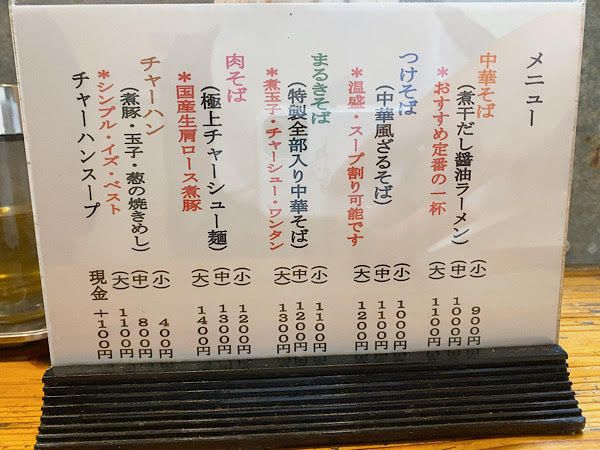 メニュー
中華そば
(煮干だし醤油ラーメン)
*おすすめ定番の一杯
(小) 900円
(中) 1000円
(大) 1100円
つけそば
(中華風ざるそば)
*温盛・スープ割り可能です
(小) 1000円
(中) 1100円
(大) 1200円
まるきそば
(特製全部入り中華そば)
*煮玉子・チャーシュー・ワンタン
(小) 1100円
(中) 1200円
(大) 1300円
肉そば
(極上チャーシュー麺)
*国産生肩ロース煮豚
(小) 1200円
(中) 1300円
(大) 1400円
チャーハン
(煮豚・玉子・葱の焼きめし)
*シンプル・イズ・ベスト
(小) 400円
(中) 800円
(大) 1100円
チャーハンスープ
現金 +100円